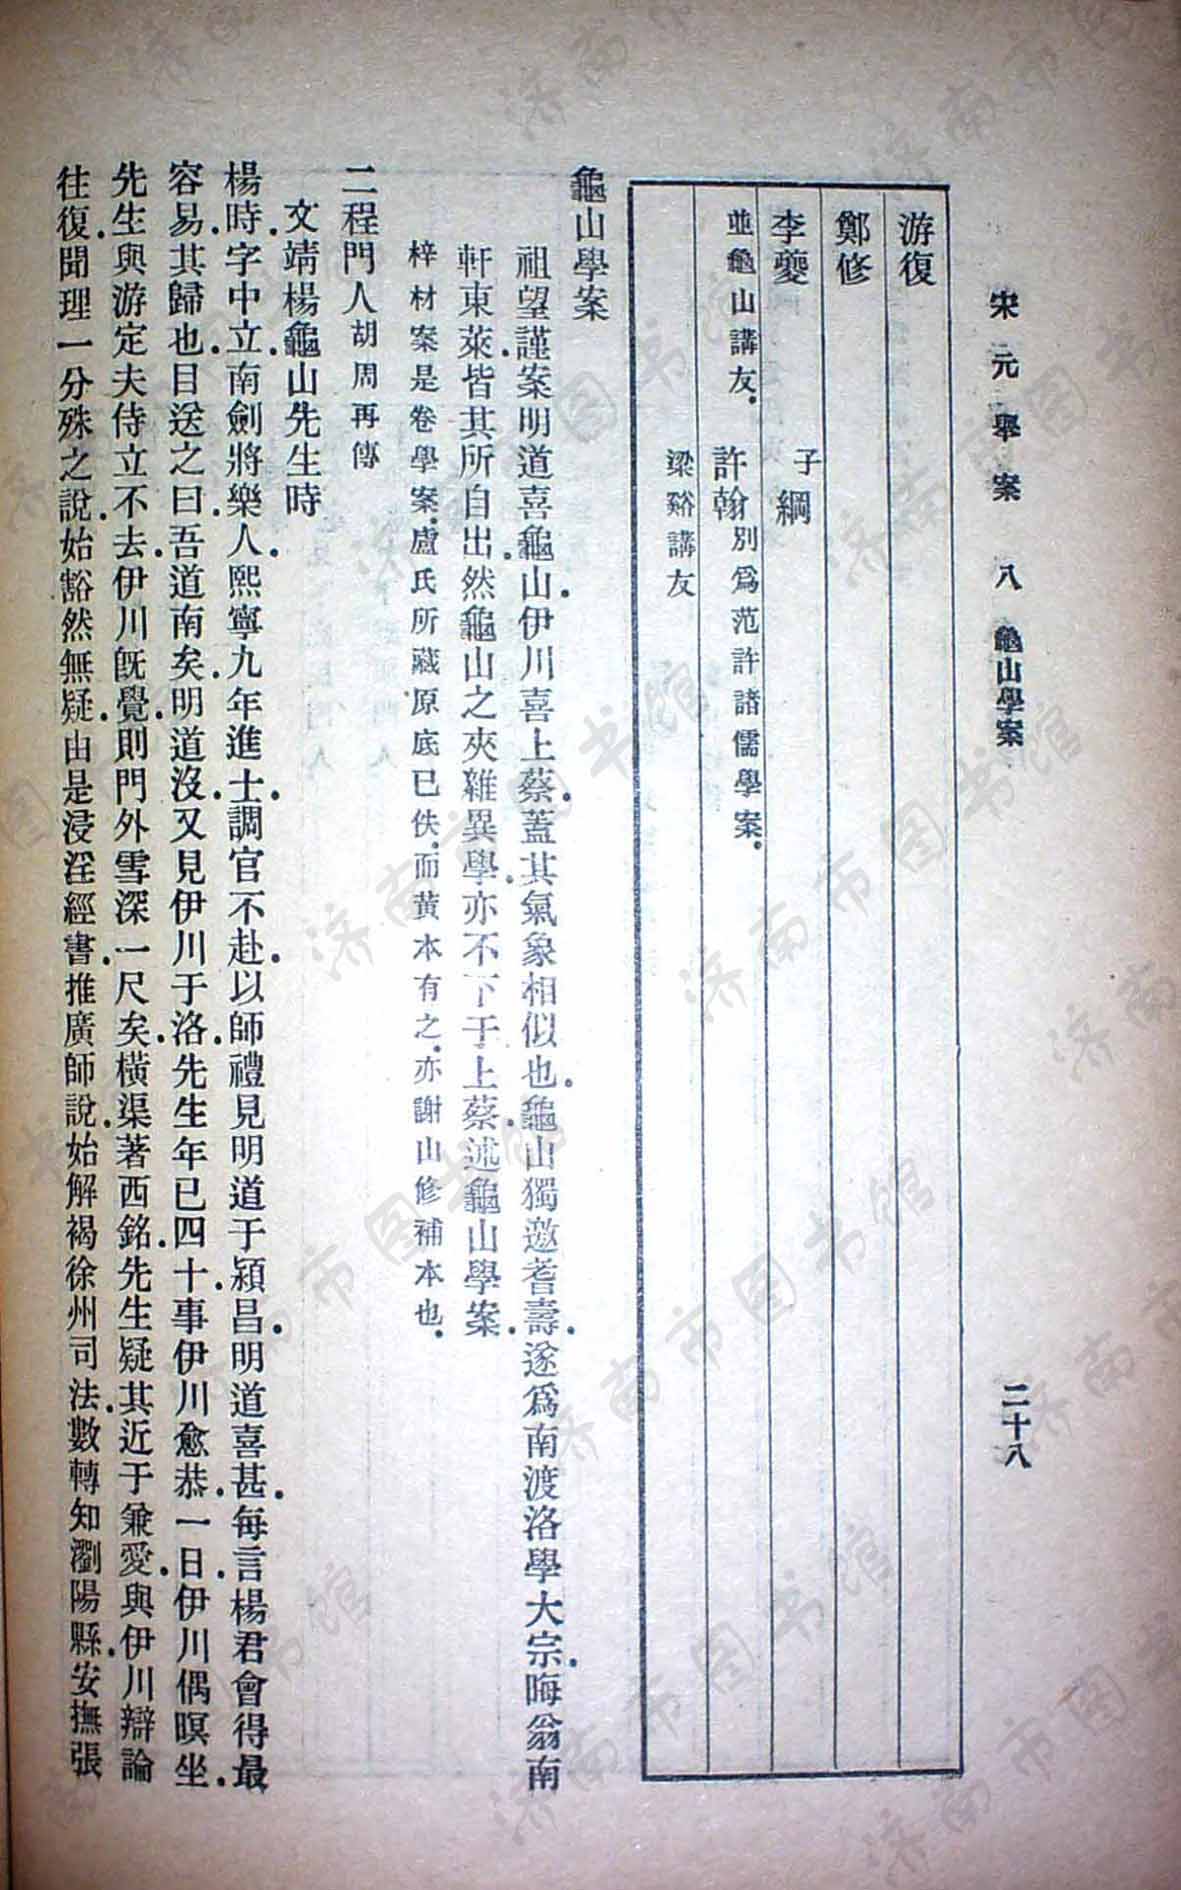 宋元學案 八 龜山學案 二十八
游復
鄭修
李夔 子綱
並龜山講友。 許翰別爲范許諸儒學案。
梁谿講友
龜山學案
祖望謹案明道喜龜山。伊川喜上蔡。蓋其氣象相似也。龜山獨邀耆壽。遂爲南渡洛學大宗。晦翁南
軒東萊。皆其所自出。然龜山之夾雜異學。亦不下于上蔡。述龜山學案。
梓材案是卷學案。盧氏所藏原底已佚。而黃本有之。亦謝山修補本也。
二程門人胡周再傳
文靖楊龜山先生時
楊時。字中立。南劍將樂人。熙寧九年進士。調官不赴。以師禮見明道于潁昌。明道喜甚。每言楊君會得最
容易。其歸也。目送之曰。吾道南矣。明道沒。又見伊川于洛。先生年已四十。事伊川愈恭。一日。伊川偶暝坐。
先生與游定夫侍立不去。伊川旣覺。則門外雪深一尺矣。橫渠著西銘。先生疑其近于兼愛。與伊川辯論
往復。聞理一分殊之說。始豁然無疑。由是浸淫經書。推廣師說。始解褐徐州司法。數轉知瀏陽縣。安撫張
济南市图书馆